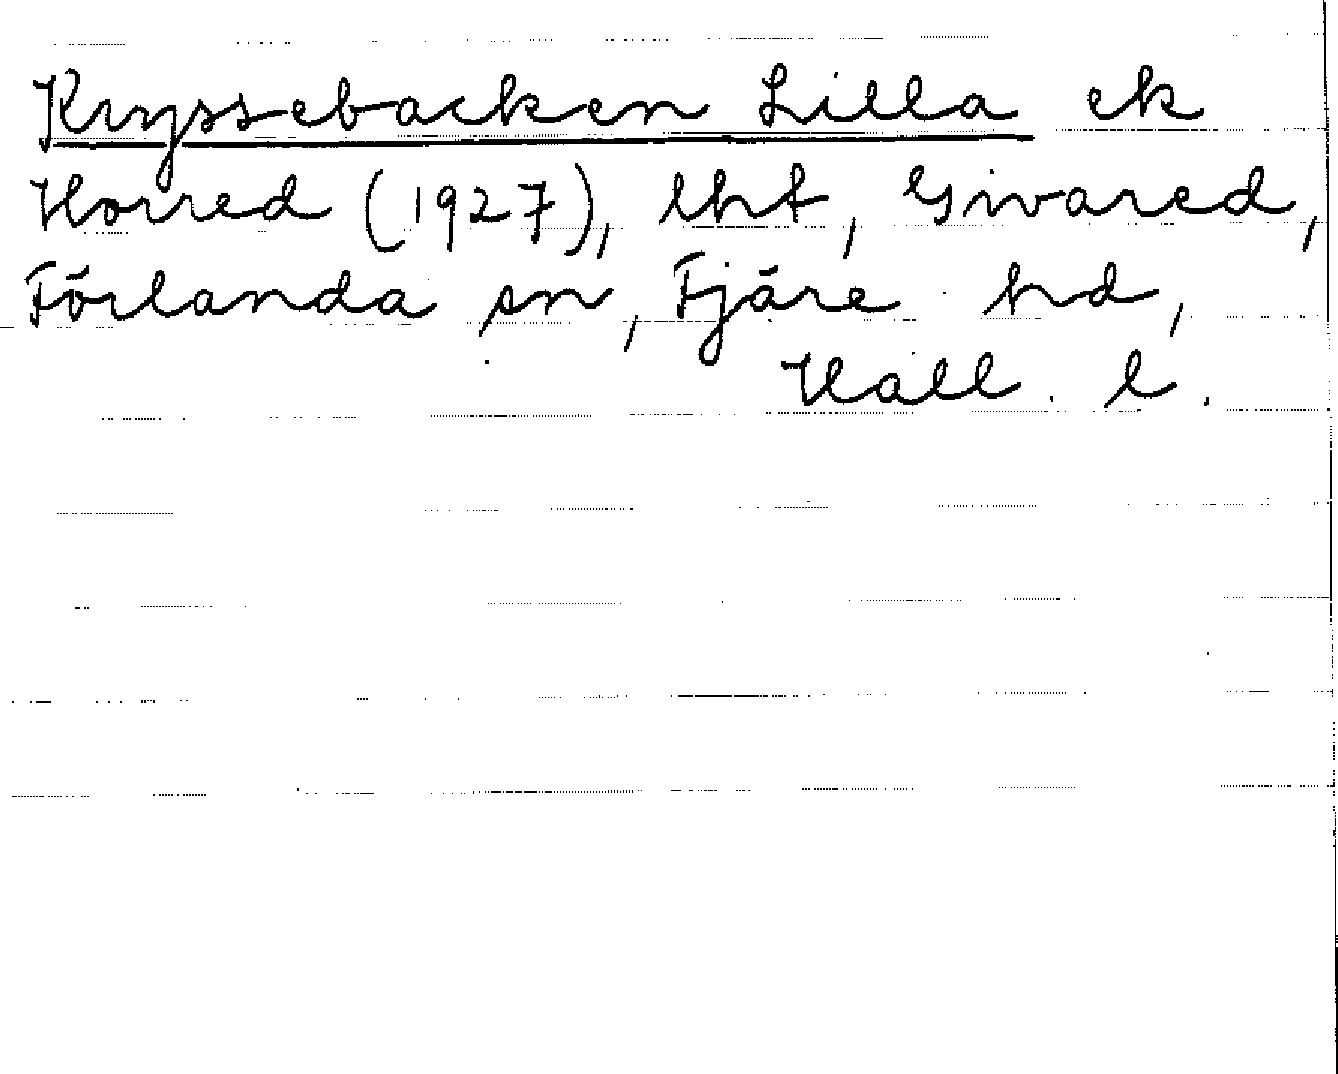 Kryssebacken Lilla ek
Horred (1927), lht, Givared,
Förlanda sn, Fjäre hd,
Hall. l.